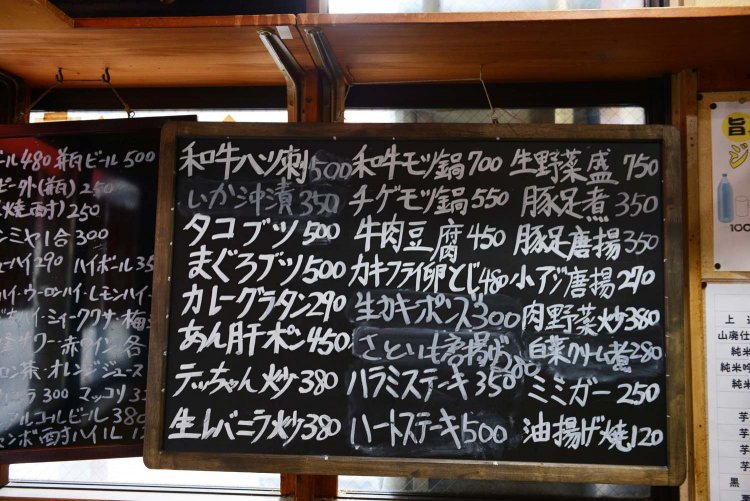 和牛ハツ刺500
いか沖漬350
タコブツ500
まぐろブツ500
カレーグラタン290
あん肝ポン450
テッチャン炒380
生レバニラ炒380
和牛モツ鍋700
チゲモツ鍋550
牛肉豆腐450
カキフライ卵とじ480
生カキポンズ300
さといも唐揚げ280
ハラミステーキ350
ハートステーキ500
生野菜盛750
豚足煮350
豚足唐揚350
小アジ唐揚270
肉野菜炒380
白菜クリーム煮280
ミミガー250
油揚げ焼120
ール480 瓶ビール500
ピー外(瓶)250
焼酎)250
1合300
ハイ290 ハイボール35
ハイ・ウーロンハイ・レモンハイ
赤ワイン各
ロン茶・オレンジジュース
300 マッコリ3
ルコールビール380
旨
ジ
100
上
山廃仕
純米
純米吟
純米
芋
芋
芋
芋
黒